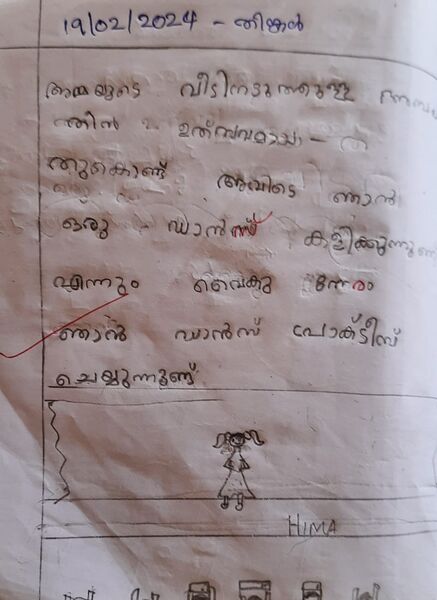 19/02/2024 - തിങ്കൾ
അമ്മയുടെ വീടിനടുത്തുള്ള
ത്തിൽ ഉത്സവമായ - ത
തുകൊണ്ട് അവിടെ ഞാൻ
ഒരു ഡാൻസ് കളിക്കുന്നുണ്ട്
എന്നും വൈകു ന്നേരം
ഞാൻ ഡാൻസ് പ്രാക്ടീസ്
ചെയ്യുന്നുണ്ട്
HIMA